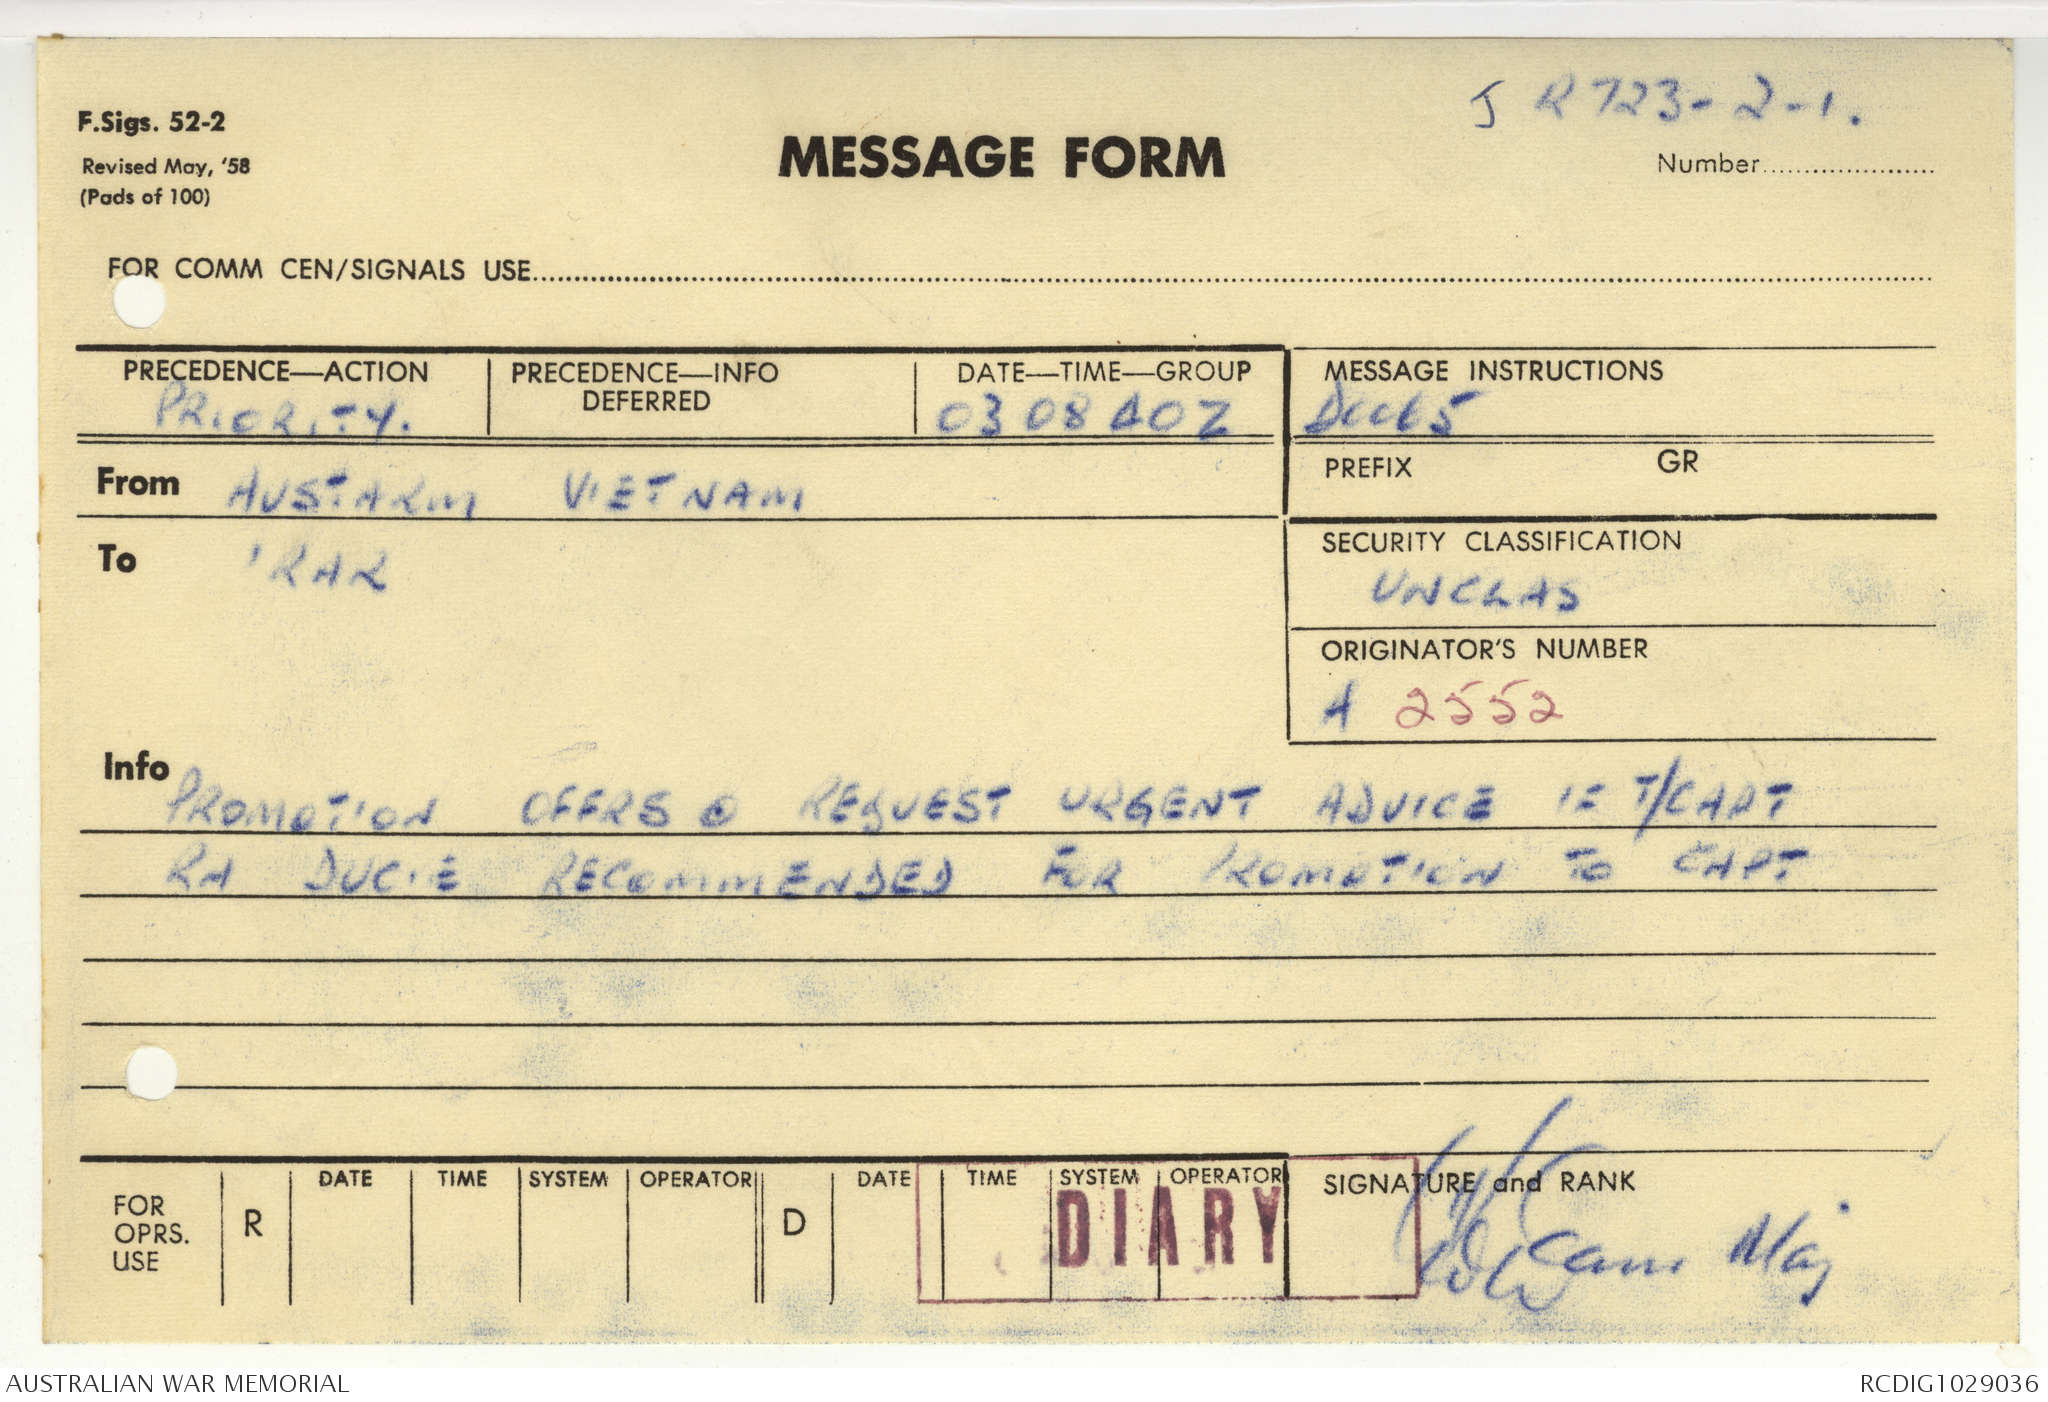 J R723-2-1.
F.Sigs. 52-2
Revised May, '58
(Pads of 100)
MESSAGE FORM
Number
FOR COMM CEN/SIGNALS USE
PRECEDENCE—ACTION
PRIORITY.
PRECEDENCE—INFO
DEFERRED
DATE—TIME—GROUP
030840Z
MESSAGE INSTRUCTIONS
PREFIX GR
From AUSTARM VIETNAM
To 1RAR
SECURITY CLASSIFICATION
UNCLAS
ORIGINATOR'S NUMBER
A 2552
Info
PROMOTION OFFRS @ REQUEST URGENT ADVICE IF T/CAPT
RA DUCIE RECOMMENDED FOR PROMOTION TO CAPT
FOR
OPRS.
USE
R
DATE TIME SYSTEM OPERATOR
D
DATE TIME SYSTEM OPERATOR
DIARY
SIGNATURE and RANK
Maj
AUSTRALIAN WAR MEMORIAL
RCDIG1029036